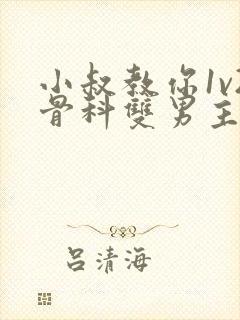 小叔教你1v2
骨科雙男主
吕清海